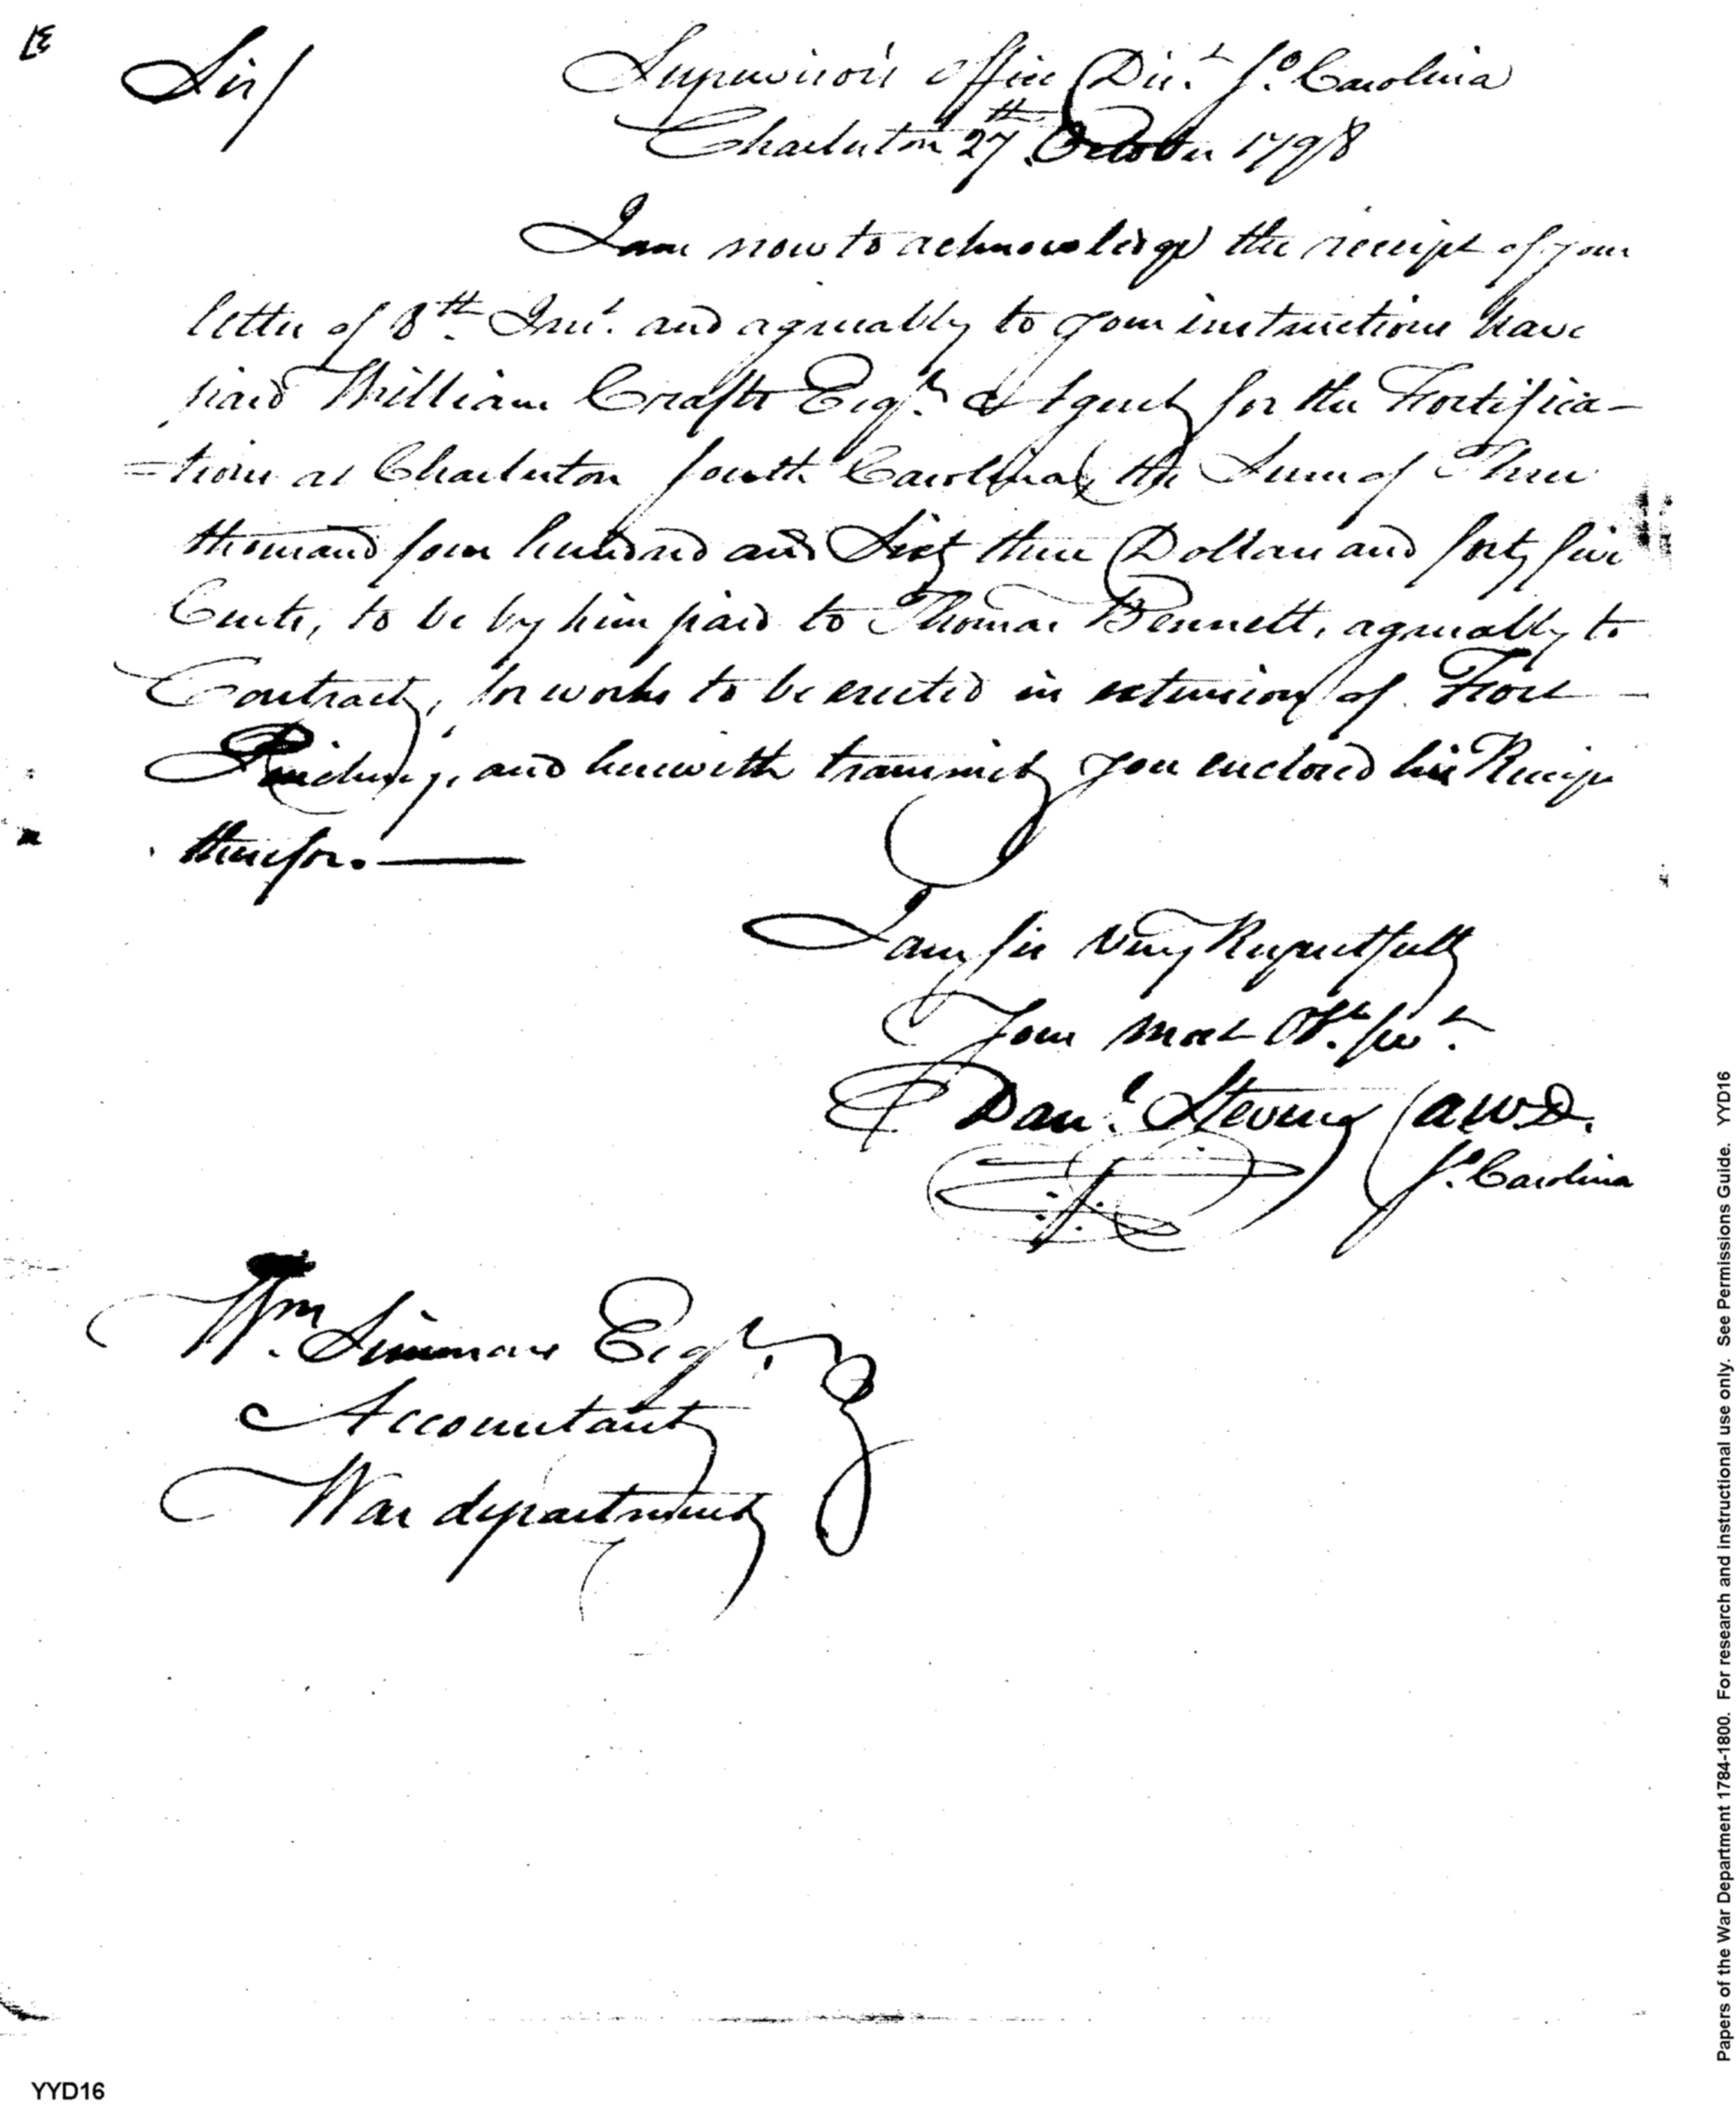 Sir/
Supervisor's office Dis.t So. Carolina
Charleston 27th October 1798
I am now to acknowledge the receipt of your
letter of 8th Inst. and agreeably to your instructions have
paid William Crafts Esqr. Agent for the Fortifica-
=tions at Charleston South Carolina, the Sum of Three
thousand four hundred and Sixty three Dollars and forty five
Cents, to be by him paid to Thomas Bennett, agreeably to
Contract, for works to be erected in extension of Fort -
Pinckney, and herewith transmit you enclosed his Receipt
therefor. —
I am Sir Very Respectfully
Your most Obt. Servt.
Danl. Stevens A W D.
So. Carolina
Wm. Simmons Esqr.
Accountant
War department
Papers of the War Department 1784-1800. For research and instructional use only. See Permissions Guide. YYD16
YYD16